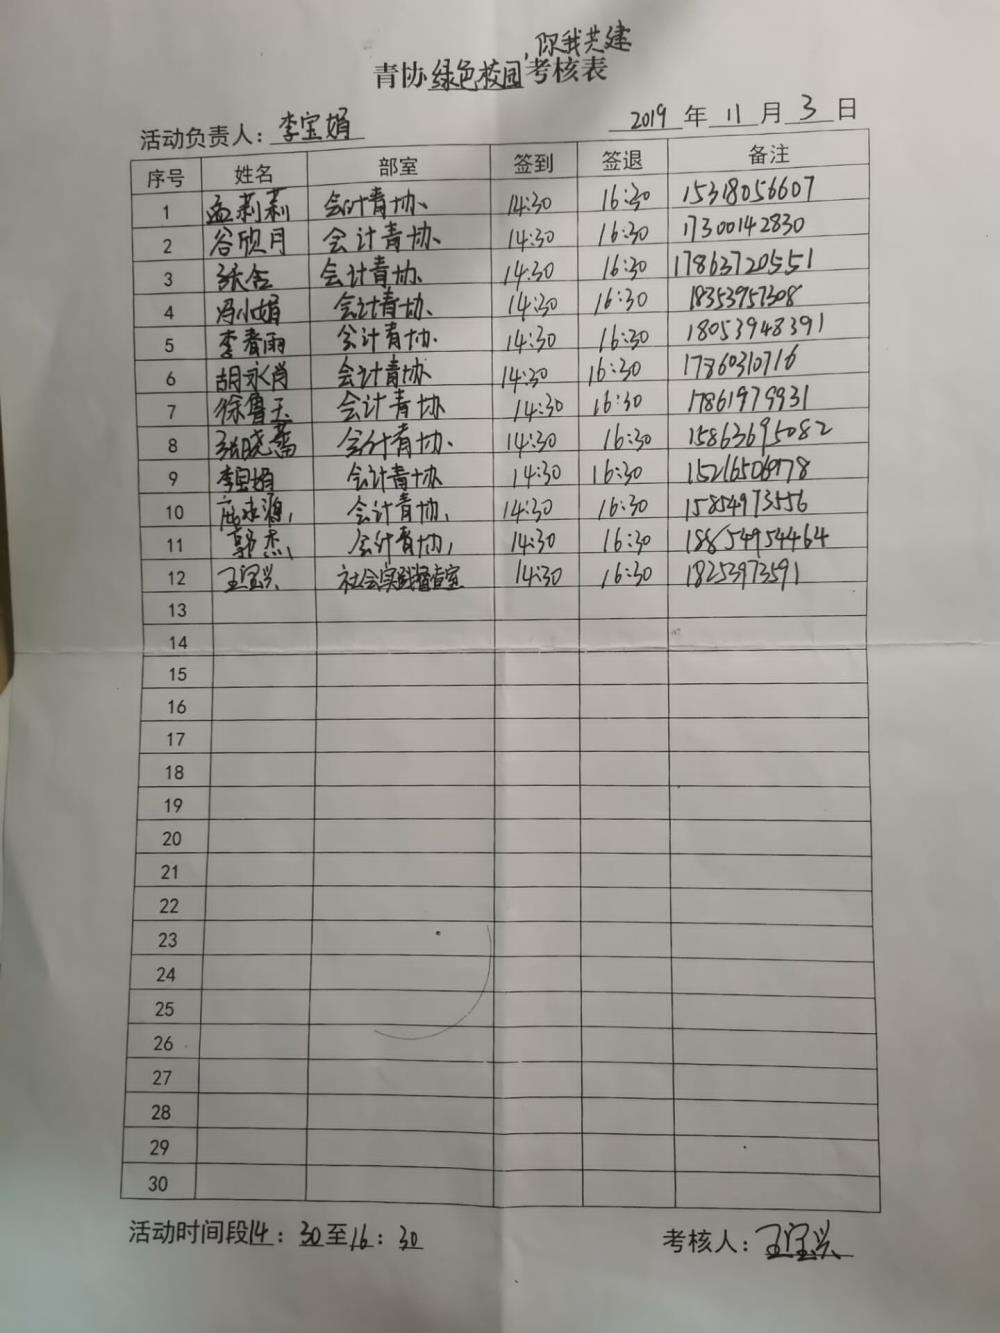 ,你我共建
青协绿色校园考核表
活动负责人：李宝娟 2019年11月3日
序号 姓名 部室 签到 签退 备注
1 孟莉莉 会计青协、 14:30 16:30 15318056607
2 谷欣月 会计青协、 14:30 16:30 17300142830
3 会计青协、 14:30 16:30 17863720551
4 冯小娟 会计青协、 14:30 16:30 18353957308
5 李春雨 会计青协、 14:30 16:30 18053948391
6 胡永肖 会计青协 14:30 16:30 17860310716
7 徐鲁玉 会计青协 14:30 16:30 17861979931
8 张晓蕾 会计青协、 14:30 16:30 15863695082
9 李宝娟 会计青协 14:30 16:30
10 会计青协, 14:30 16:30 15854973556
11 郭杰、 会计青协, 14:30 16:30 18654954464
12 王宝兴 社会实践督查室 14:30 16:30 18253973591
13
14
15
16
17
18
19
20
21
22
23
24
25
26
27
28
29
30
活动时间段14：30至16：30 考核人：王宝兴